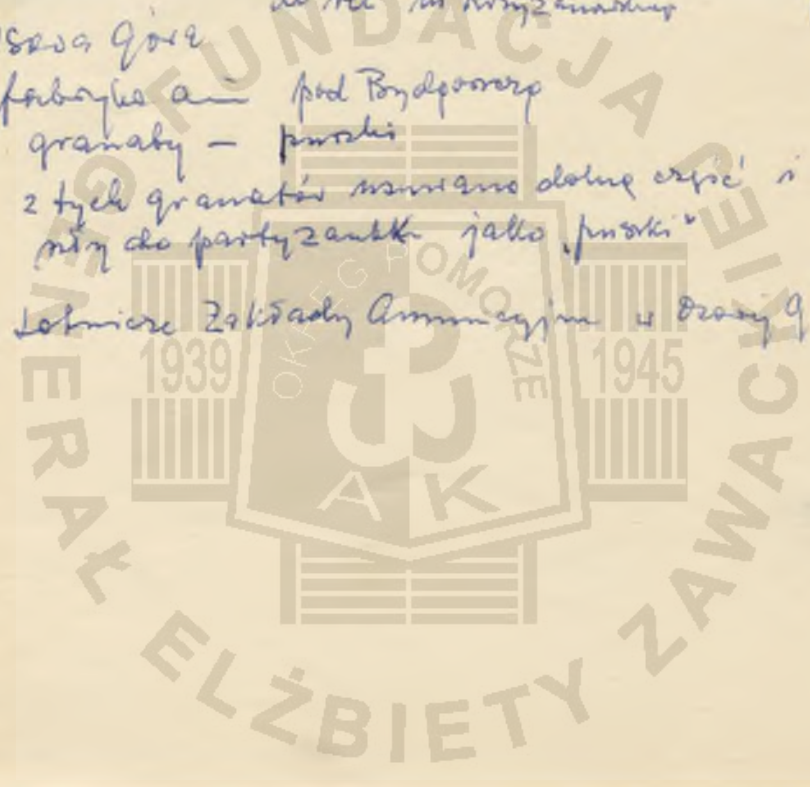 Góra
fabryka pod Bydgoszczą
granaty – puszki
z tych granatów usuwano dolną część i
szły do partyzantki jako „puszki"
Lotnicze Zakłady Amunicyjne w
FUNDACJA GENERAŁ ELŻBIETY ZAWACKIEJ
OKRĘG POMORZE
1939 1945
AK